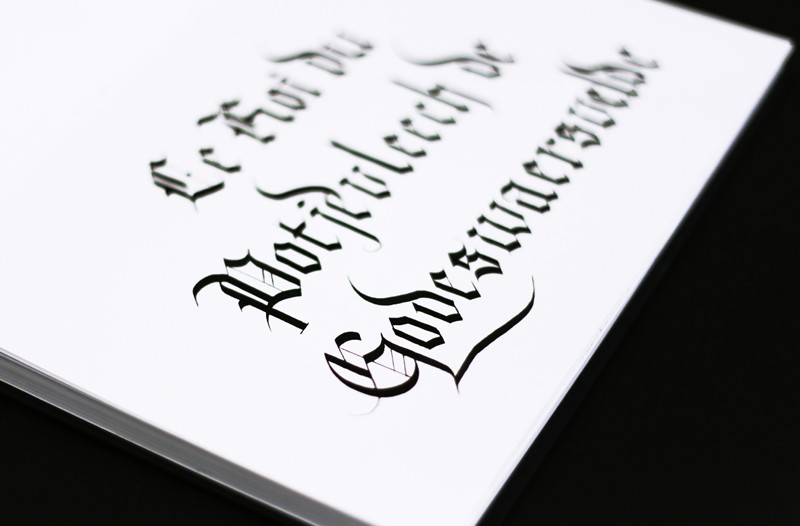 Le Roi du
Potjevleech de
Godeswaersvelde